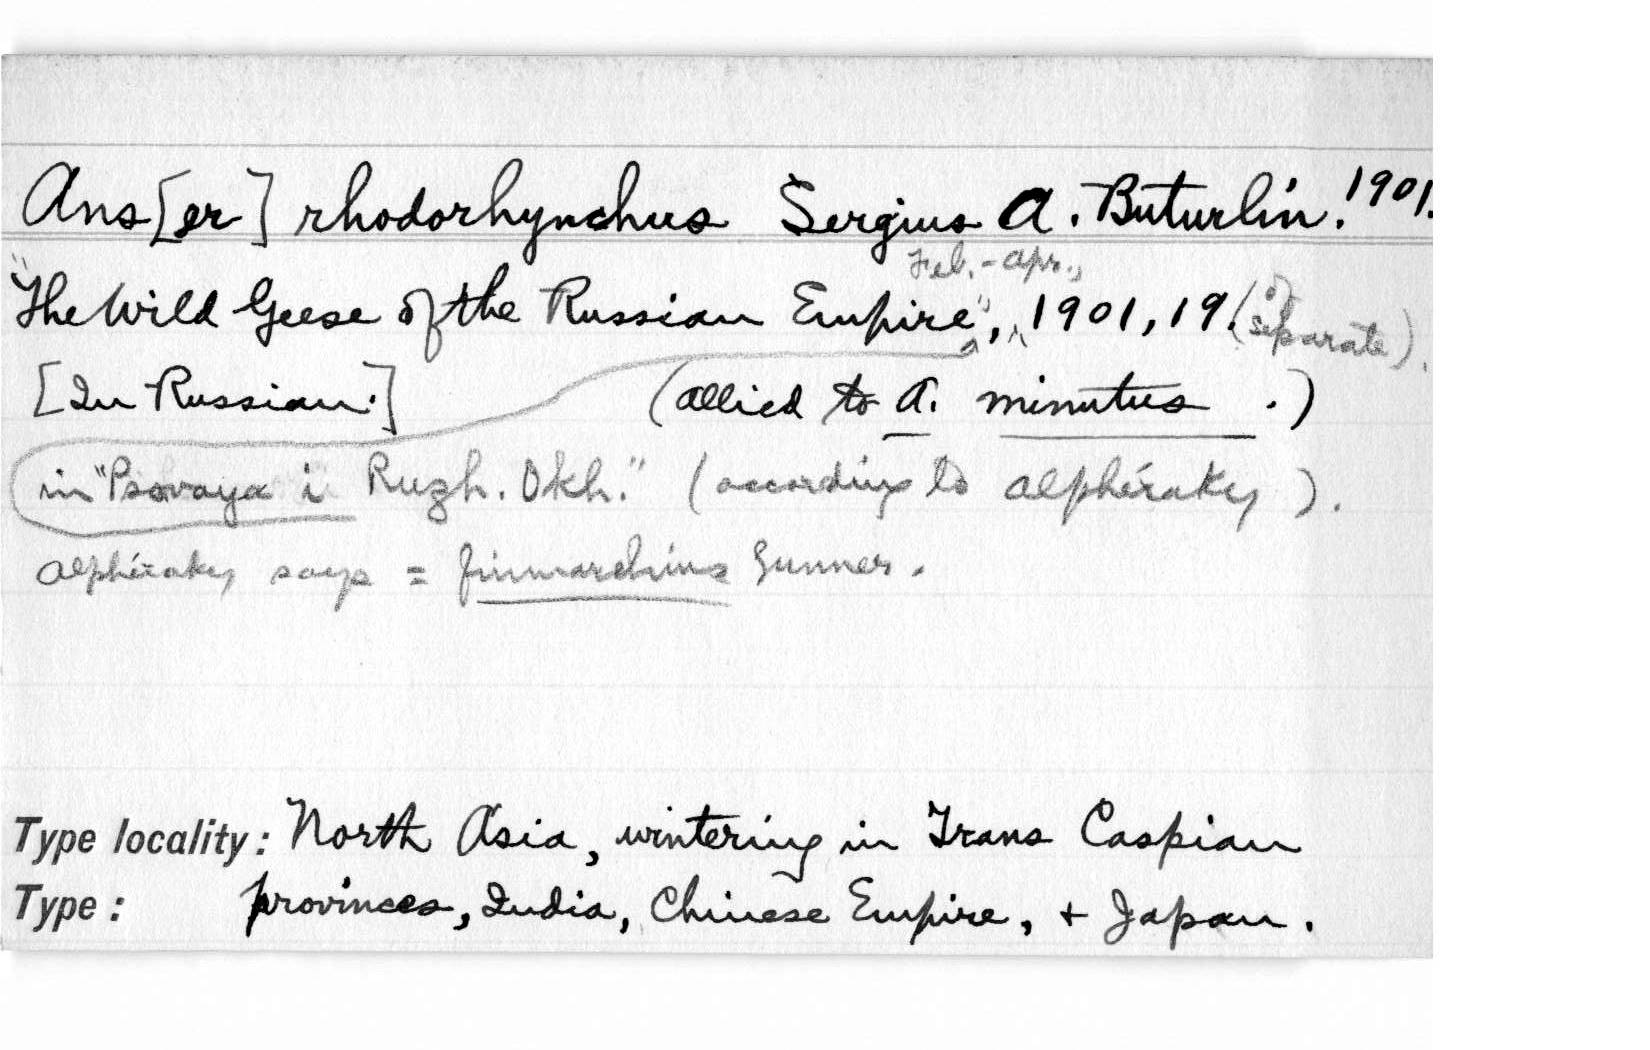 Ans[er] rhodorhynchus Sergius A. Buturlin. 1901.
Feb. - Apr.,
"The Wild Geese of the Russian Empire", 1901, 19. (of separate).
[In Russian.] (allied to A. minutus .)
in "Psovaya i Ruzh. Okh." (according to Alphéraky).
Alphéraky says = finmarchius Gunner.
Type locality: North Asia, wintering in Trans Caspian
Type: provinces, India, Chinese Empire, + Japan.